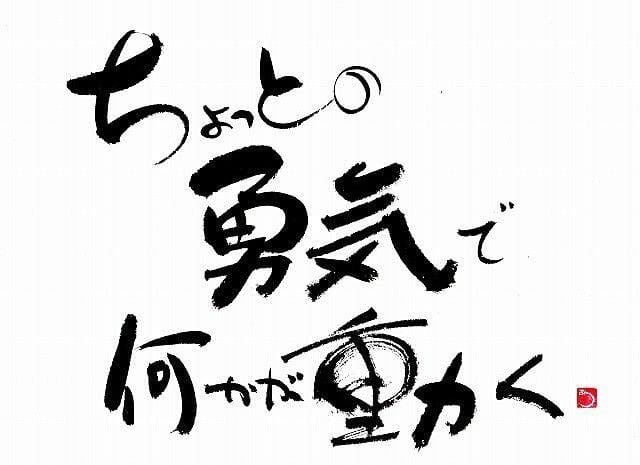 ちょっとの
勇気で
何かが動く